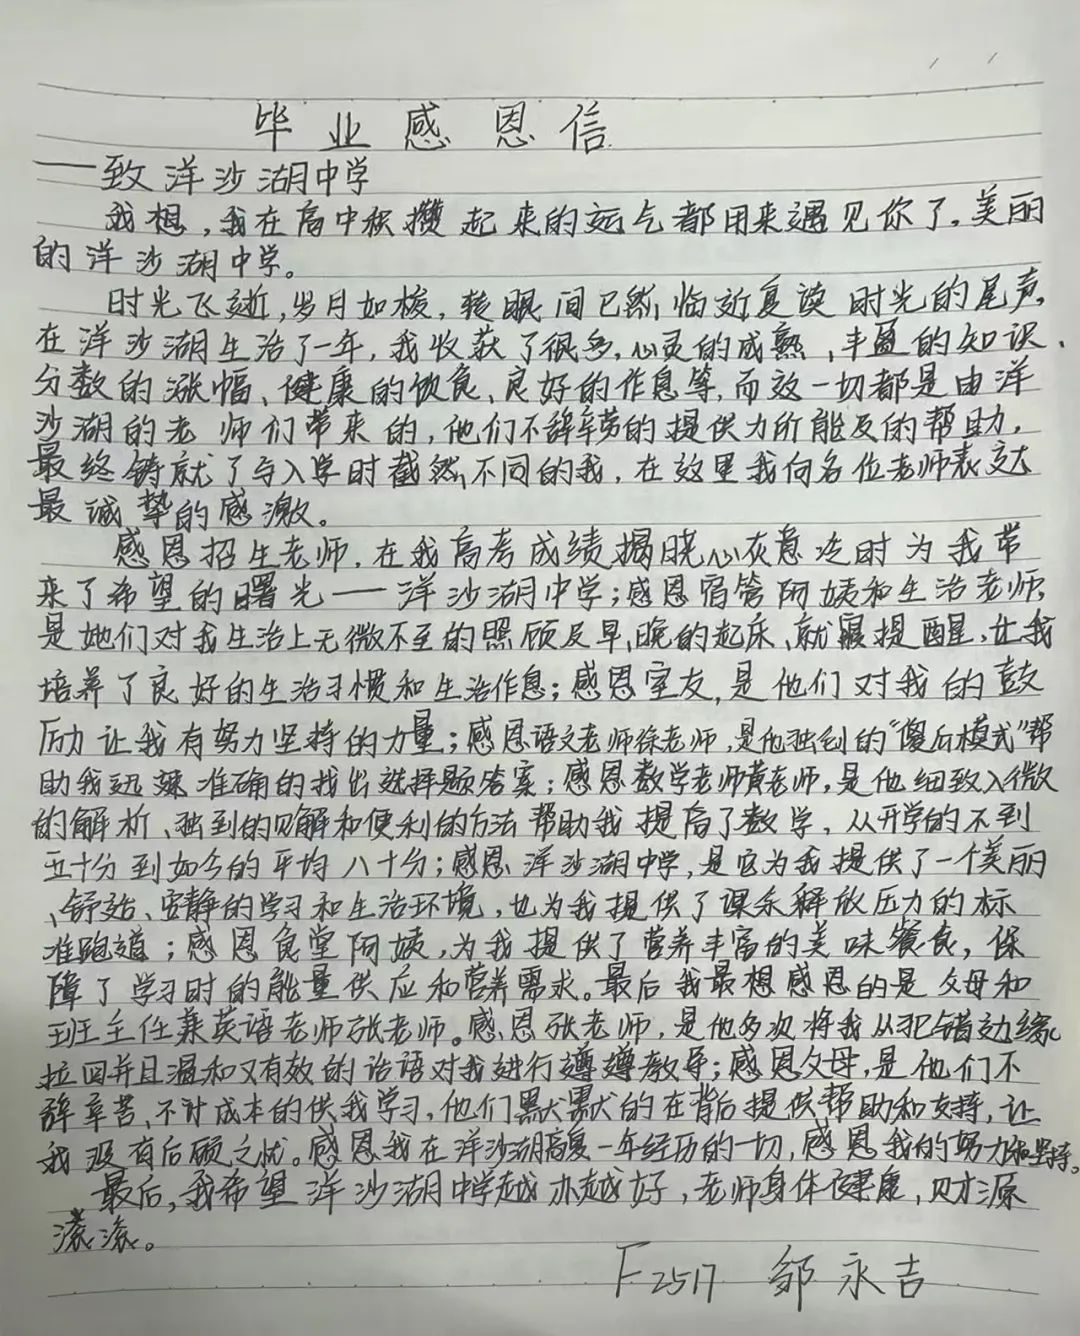 毕业感恩信
——致洋沙湖中学
我想，我在高中积攒起来的运气都用来遇见你了，美丽
的洋沙湖中学。
时光飞逝，岁月如梭，转眼间已然临近复读时光的尾声，
在洋沙湖生活了一年，我收获了很多，心灵的成熟、丰盈的知识、
分数的涨幅、健康的饮食、良好的作息等，而这一切都是由洋
沙湖的老师们带来的，他们不辞辛劳的提供力所能及的帮助，
最终铸就了与入学时截然不同的我，在这里我向各位老师表达
最诚挚的感激。
感恩招生老师，在我高考成绩揭晓心灰意冷时为我带
来了希望的曙光——洋沙湖中学；感恩宿管阿姨和生活老师，
是她们对我生活上无微不至的照顾及早、晚的起床、就寝提醒，让我
培养了良好的生活习惯和生活作息；感恩室友，是他们对我的鼓
励让我有努力坚持的力量；感恩语文老师徐老师，是他独到的“傻瓜模式”帮
助我迅速准确的找出选择题答案；感恩数学老师黄老师，是他细致入微
的解析、独到的见解和便利的方法帮助我提高了数学，从开学的不到
五十分到如今的平均八十分；感恩洋沙湖中学，是它为我提供了一个美丽
、舒适、安静的学习和生活环境，也为我提供了课余释放压力的标
准跑道；感恩食堂阿姨，为我提供了营养丰富的美味餐食，保
障了学习时的能量供应和营养需求。最后我最想感恩的是父母和
班主任兼英语老师张老师。感恩张老师，是他多次将我从犯错边缘
拉回并且温和又有效的话语对我进行遵遵教导；感恩父母，是他们不
辞辛苦、不计成本的供我学习，他们默默的在背后提供帮助和支持，让
我没有后顾之忧。感恩我在洋沙湖高复一年经历的一切，感恩我的努力和坚持。
最后，我希望洋沙湖中学越办越好，老师身体健康，财源
滚滚。
F2517 邹永吉